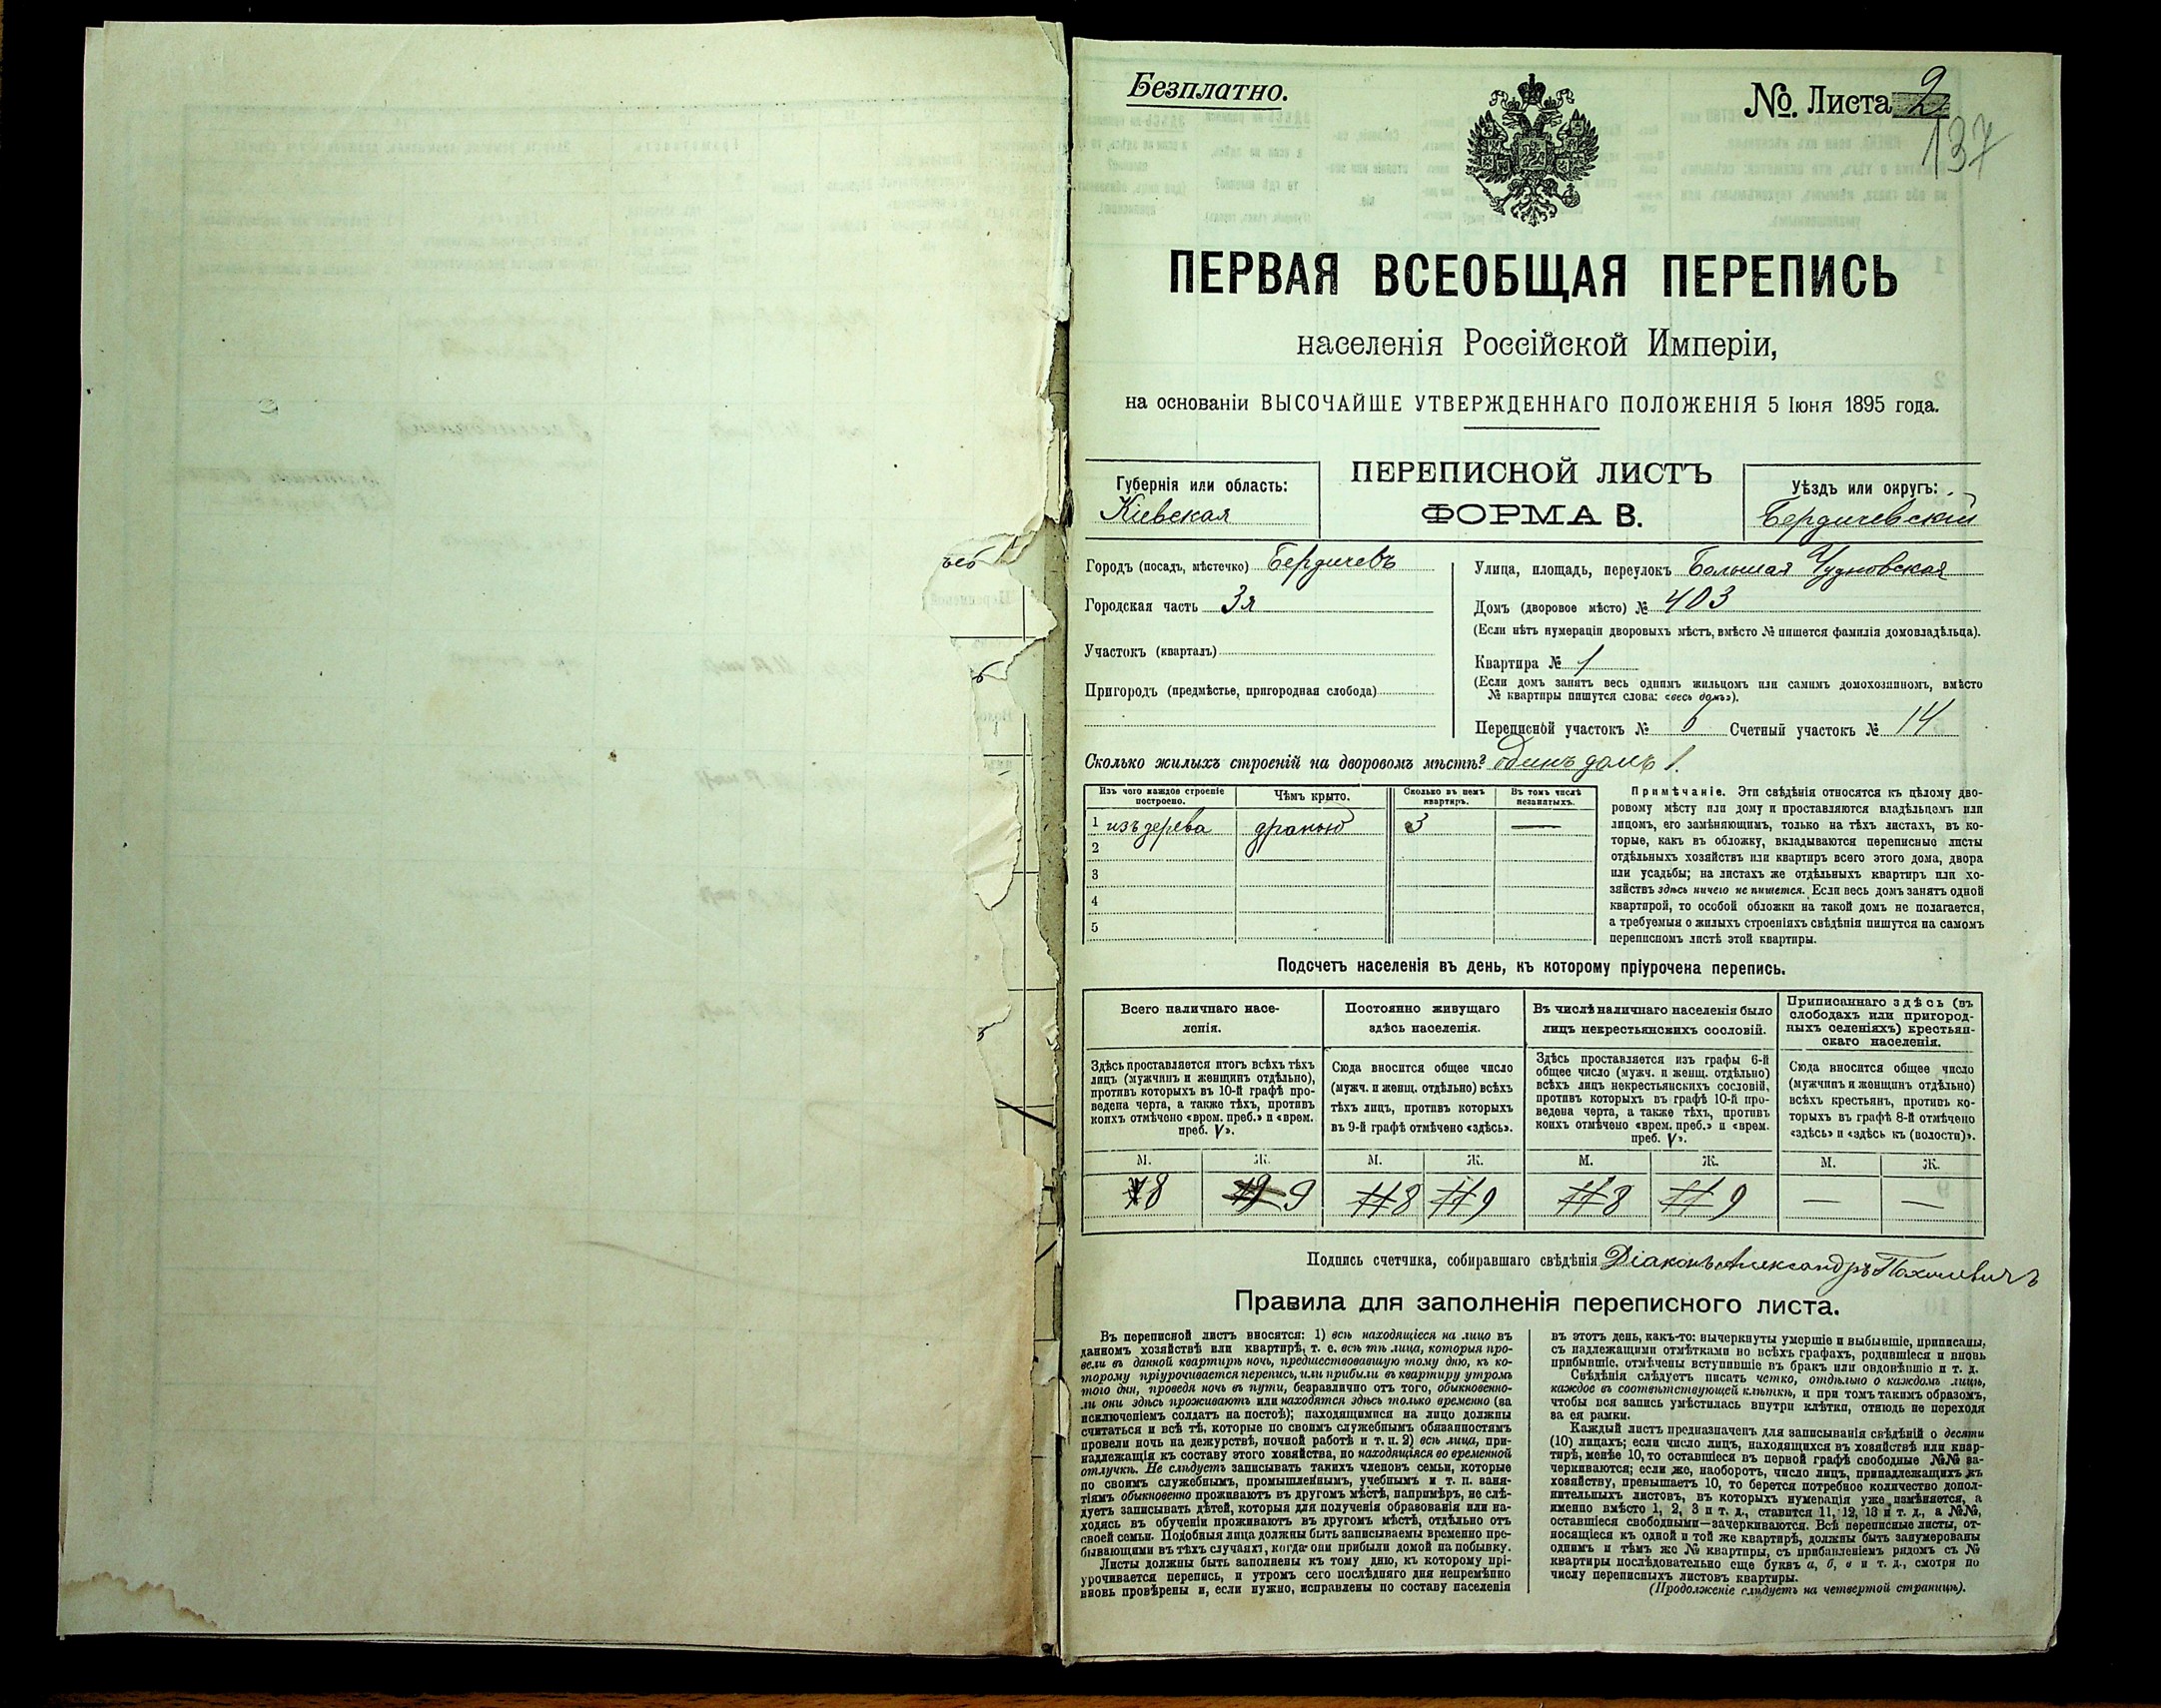 Безплатно.
№. Листа 2
137
ПЕРВАЯ ВСЕОБЩАЯ ПЕРЕПИСЬ
населенія Россійской Имперіи,
на основаніи ВЫСОЧАЙШЕ УТВЕРЖДЕННАГО ПОЛОЖЕНІЯ 5 Іюня 1895 года.
Губернія или область:
Кіевская
ПЕРЕПИСНОЙ ЛИСТЪ
ФОРМА В.
Уѣздъ или округъ:
Бердичевскій
Городъ (посадъ, мѣстечко) Бердичевъ
Городская часть 3я
Участокъ (кварталъ)
Пригородъ (предмѣстье, пригородная слобода)
Улица, площадь, переулокъ Большая Чудновская
Домъ (дворовое мѣсто) № 403
(Если нѣтъ нумераціи дворовыхъ мѣстъ, вмѣсто № пишется фамилія домовладѣльца).
Квартира № 1
(Если домъ занятъ весь однимъ жильцомъ или самимъ домохозяиномъ, вмѣсто
№ квартиры пишутся слова: «весь домъ»).
Переписной участокъ № Счетный участокъ № 14
Сколько жилыхъ строеній на дворовомъ мѣстѣ? Одинъ домъ 1.
Изъ чего каждое строеніе
построено.
Чѣмъ крыто.
Сколько въ немъ
квартиръ.
Въ томъ числѣ
незанятыхъ.
1 изъ дерева дранью 3 —
2
3
4
5
Примѣчаніе. Эти свѣдѣнія относятся къ цѣлому дво-
ровому мѣсту или дому и проставляются владѣльцемъ или
лицомъ, его замѣняющимъ, только на тѣхъ листахъ, въ ко-
торые, какъ въ обложку, вкладываются переписные листы
отдѣльныхъ хозяйствъ или квартиръ всего этого дома, двора
или усадьбы; на листахъ же отдѣльныхъ квартиръ или хо-
зяйствъ здѣсь ничего не пишется. Если весь домъ занятъ одной
квартирой, то особой обложки на такой домъ не полагается,
а требуемыя о жилыхъ строеніяхъ свѣдѣнія пишутся на самомъ
переписномъ листѣ этой квартиры.
Подсчетъ населенія въ день, къ которому пріурочена перепись.
Всего наличнаго насе-
ленія.
Здѣсь проставляется итогъ всѣхъ тѣхъ
лицъ (мужчинъ и женщинъ отдѣльно),
противъ которыхъ въ 10-й графѣ про-
ведена черта, а также тѣхъ, противъ
коихъ отмѣчено «врем. преб.» и «врем.
преб. V».
Постоянно живущаго
здѣсь населенія.
Сюда вносится общее число
(мужч. и женщ. отдѣльно) всѣхъ
тѣхъ лицъ, противъ которыхъ
въ 9-й графѣ отмѣчено «здѣсь».
Въ числѣ наличнаго населенія было
лицъ некрестьянскихъ сословій.
Здѣсь проставляется изъ графы 6-й
общее число (мужч. и женщ. отдѣльно)
всѣхъ лицъ некрестьянскихъ сословій,
противъ которыхъ въ графѣ 10-й про-
ведена черта, а также тѣхъ, противъ
коихъ отмѣчено «врем. преб.» и «врем.
преб. V».
Приписаннаго здѣсь (въ
слободахъ или пригород-
ныхъ селеніяхъ) крестьян-
скаго населенія.
Сюда вносится общее число
(мужчинъ и женщинъ отдѣльно)
всѣхъ крестьянъ, противъ ко-
торыхъ въ графѣ 8-й отмѣчено
«здѣсь» и «здѣсь къ (волости)».
М. Ж. М. Ж. М. Ж. М. Ж.
8 9 8 9 8 9 — —
Подпись счетчика, собиравшаго свѣдѣнія Діаконъ Александръ Пахолевичъ
Правила для заполненія переписного листа.
Въ переписной листъ вносятся: 1) всѣ находящіеся на лицо въ
данномъ хозяйствѣ или квартирѣ, т. е. всѣ тѣ лица, которыя про-
вели въ данной квартирѣ ночь, предшествовавшую тому дню, къ ко-
торому пріурочивается перепись, или прибыли въ квартиру утромъ
того дня, проведя ночь въ пути, безразлично отъ того, обыкновенно-
ли они здѣсь проживаютъ или находятся здѣсь только временно (за
исключеніемъ солдатъ на постоѣ); находящимися на лицо должны
считаться и всѣ тѣ, которые по своимъ служебнымъ обязанностямъ
провели ночь на дежурствѣ, ночной работѣ и т. п. 2) всѣ лица, при-
надлежащія къ составу этого хозяйства, но находящіяся во временной
отлучкѣ. Не слѣдуетъ записывать такихъ членовъ семьи, которые
по своимъ служебнымъ, промышленнымъ, учебнымъ и т. п. заня-
тіямъ обыкновенно проживаютъ въ другомъ мѣстѣ, напримѣръ, не слѣ-
дуетъ записывать дѣтей, которыя для полученія образованія или на-
ходясь въ обученіи проживаютъ въ другомъ мѣстѣ, отдѣльно отъ
своей семьи. Подобныя лица должны быть записываемы временно пре-
бывающими въ тѣхъ случаяхъ, когда они прибыли домой на побывку.
Листы должны быть заполнены къ тому дню, къ которому прі-
урочивается перепись, и утромъ сего послѣдняго дня непремѣнно
вновь провѣрены и, если нужно, исправлены по составу населенія
въ этотъ день, какъ-то: вычеркнуты умершіе и выбывшіе, приписаны,
съ надлежащими отмѣтками во всѣхъ графахъ, родившіеся и вновь
прибывшіе, отмѣчены вступившіе въ бракъ или овдовѣвшіе и т. д.
Свѣдѣнія слѣдуетъ писать четко, отдѣльно о каждомъ лицѣ,
каждое въ соотвѣтствующей клѣткѣ, и при томъ такимъ образомъ,
чтобы вся запись умѣстилась внутри клѣтки, отнюдь не переходя
за ея рамки.
Каждый листъ предназначенъ для записыванія свѣдѣній о десяти
(10) лицахъ; если число лицъ, находящихся въ хозяйствѣ или квар-
тирѣ, менѣе 10, то оставшіеся въ первой графѣ свободные №№ за-
черкиваются; если же, наоборотъ, число лицъ, принадлежащихъ къ
хозяйству, превышаетъ 10, то берется потребное количество допол-
нительныхъ листовъ, въ которыхъ нумерація уже измѣняется, а
именно вмѣсто 1, 2, 3 и т. д., ставится 11, 12, 13 и т. д., а №№,
оставшіеся свободными—зачеркиваются. Всѣ переписные листы, от-
носящіеся къ одной и той же квартирѣ, должны быть занумерованы
однимъ и тѣмъ же № квартиры, съ прибавленіемъ рядомъ съ №
квартиры послѣдовательно еще буквъ а, б, в и т. д., смотря по
числу переписныхъ листовъ квартиры.
(Продолженіе слѣдуетъ на четвертой страницѣ).